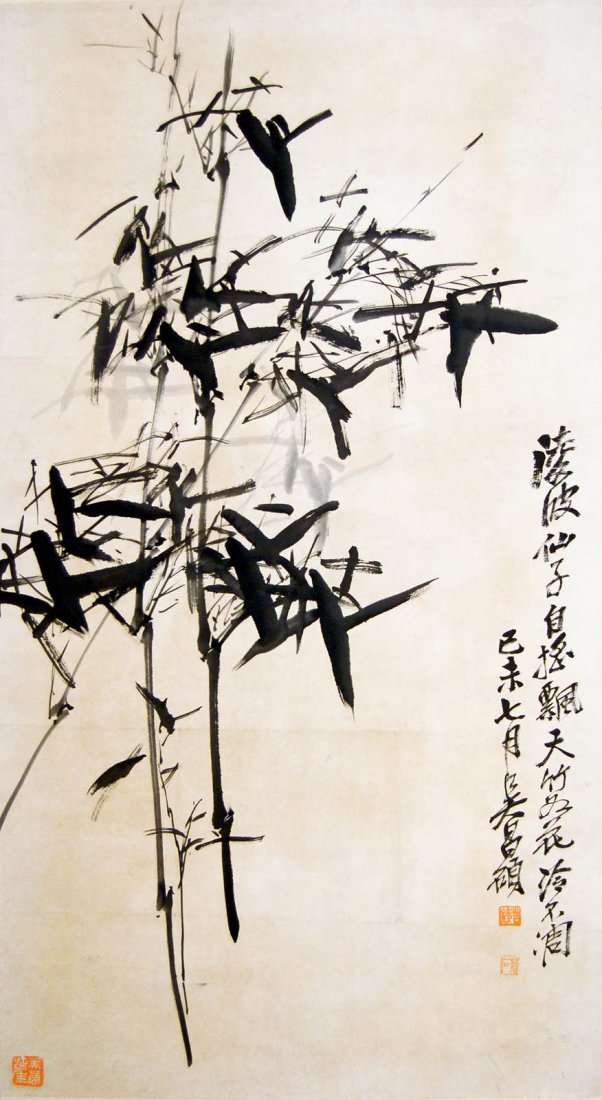 淩波仙子自搖飄天竹如花冷不凋
己未七月吳昌碩